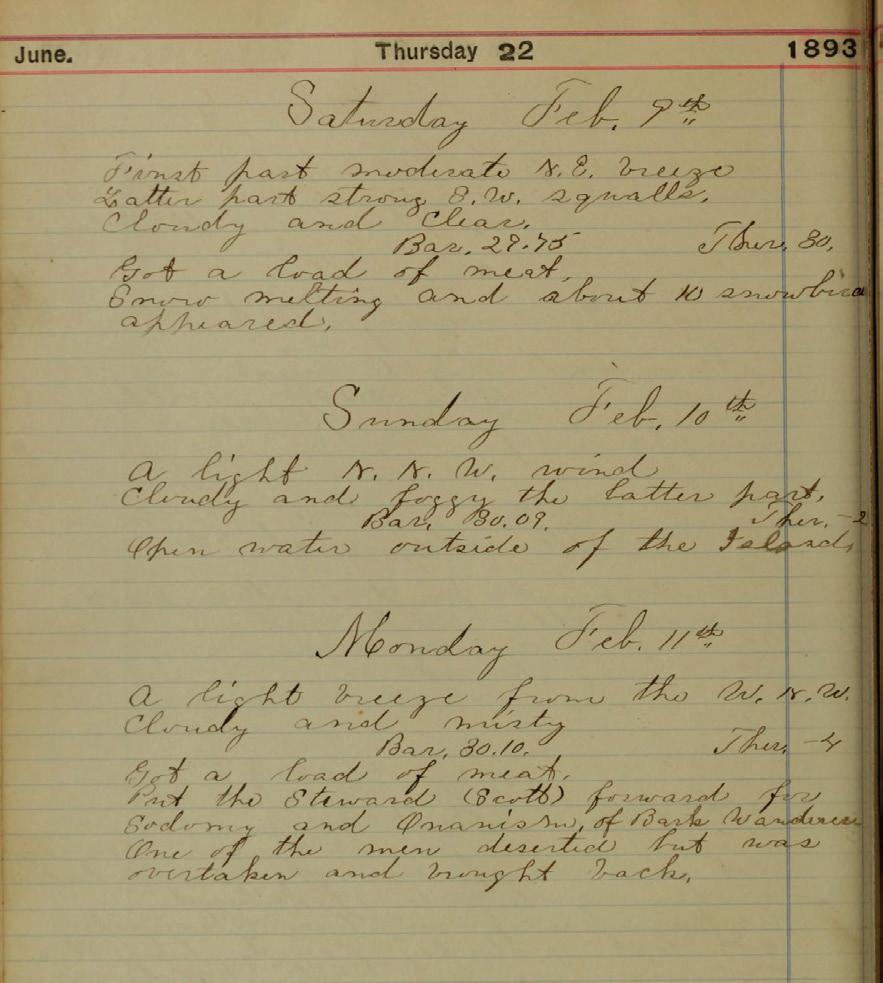 June. Thursday 22 1893
Saturday Feb. 9th
First part moderate N.E. breeze
Latter part strong S.W. squalls.
Cloudy and Clear.
Bar. 29.75 Ther. 30.
Got a load of meat.
Snow melting and about 10
appeared.
Sunday Feb. 10th
A light N. N. W. wind
Cloudy and foggy the latter part.
Bar. 30.09. Ther. -2
Open water outside of the Island,
Monday Feb. 11th
A light breeze from the W. N. W.
Cloudy and misty
Bar. 30.10. Ther. -4
Got a load of meat.
Put the Steward (Scott) forward for
Sodomy and Onanism, of Bark
One of the men deserted but was
overtaken and brought back.